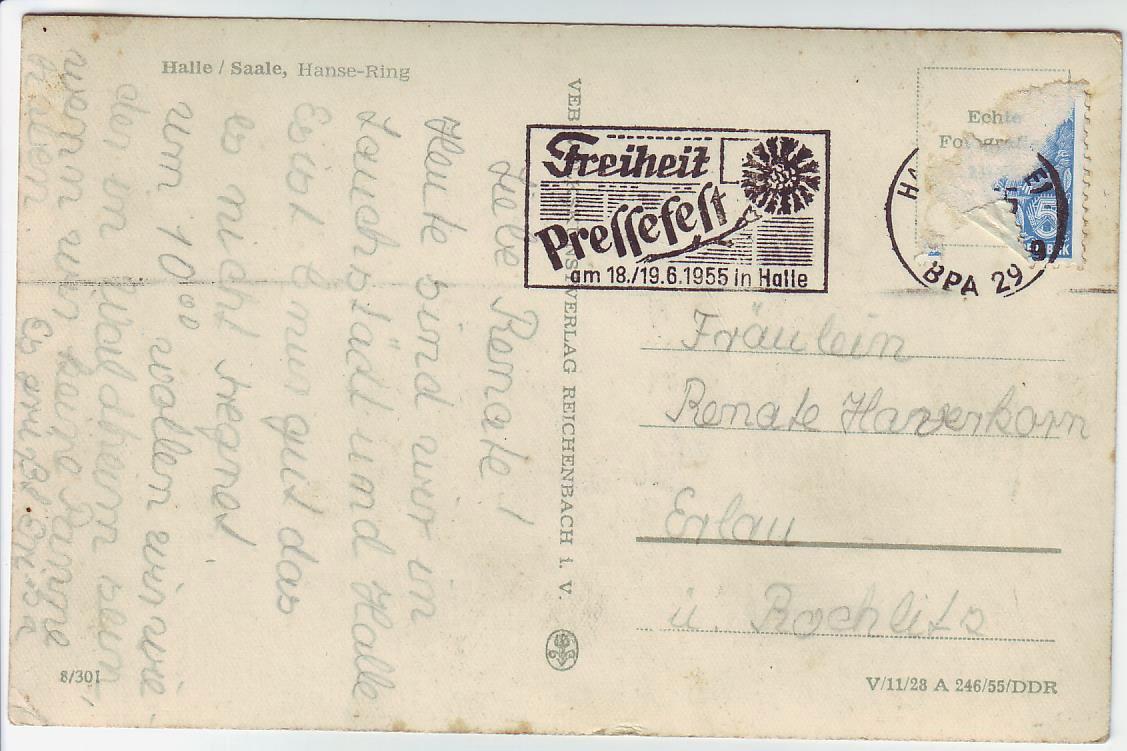 Halle / Saale, Hanse-Ring
Liebe Renate!
Heute sind wir in
Lauchstädt und Halle
Es ist nur gut das
es nicht regnet.
um 10 00 wollen wir wie
der in
wenn wir keine Panne
haben
Es
8/301
VEB
VERLAG REICHENBACH i. V.
Freiheit
Pressefest
am 18./19.6.1955 in Halle
Echte
BPA 29
5
Fräulein
Renate Haverkorn
Erlau
ü. Rochlitz
V/11/28 A 246/55/DDR